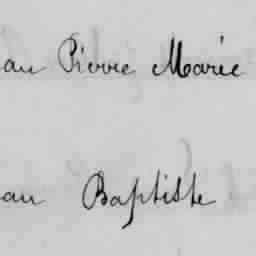 an Pierre Marie
an Baptiste